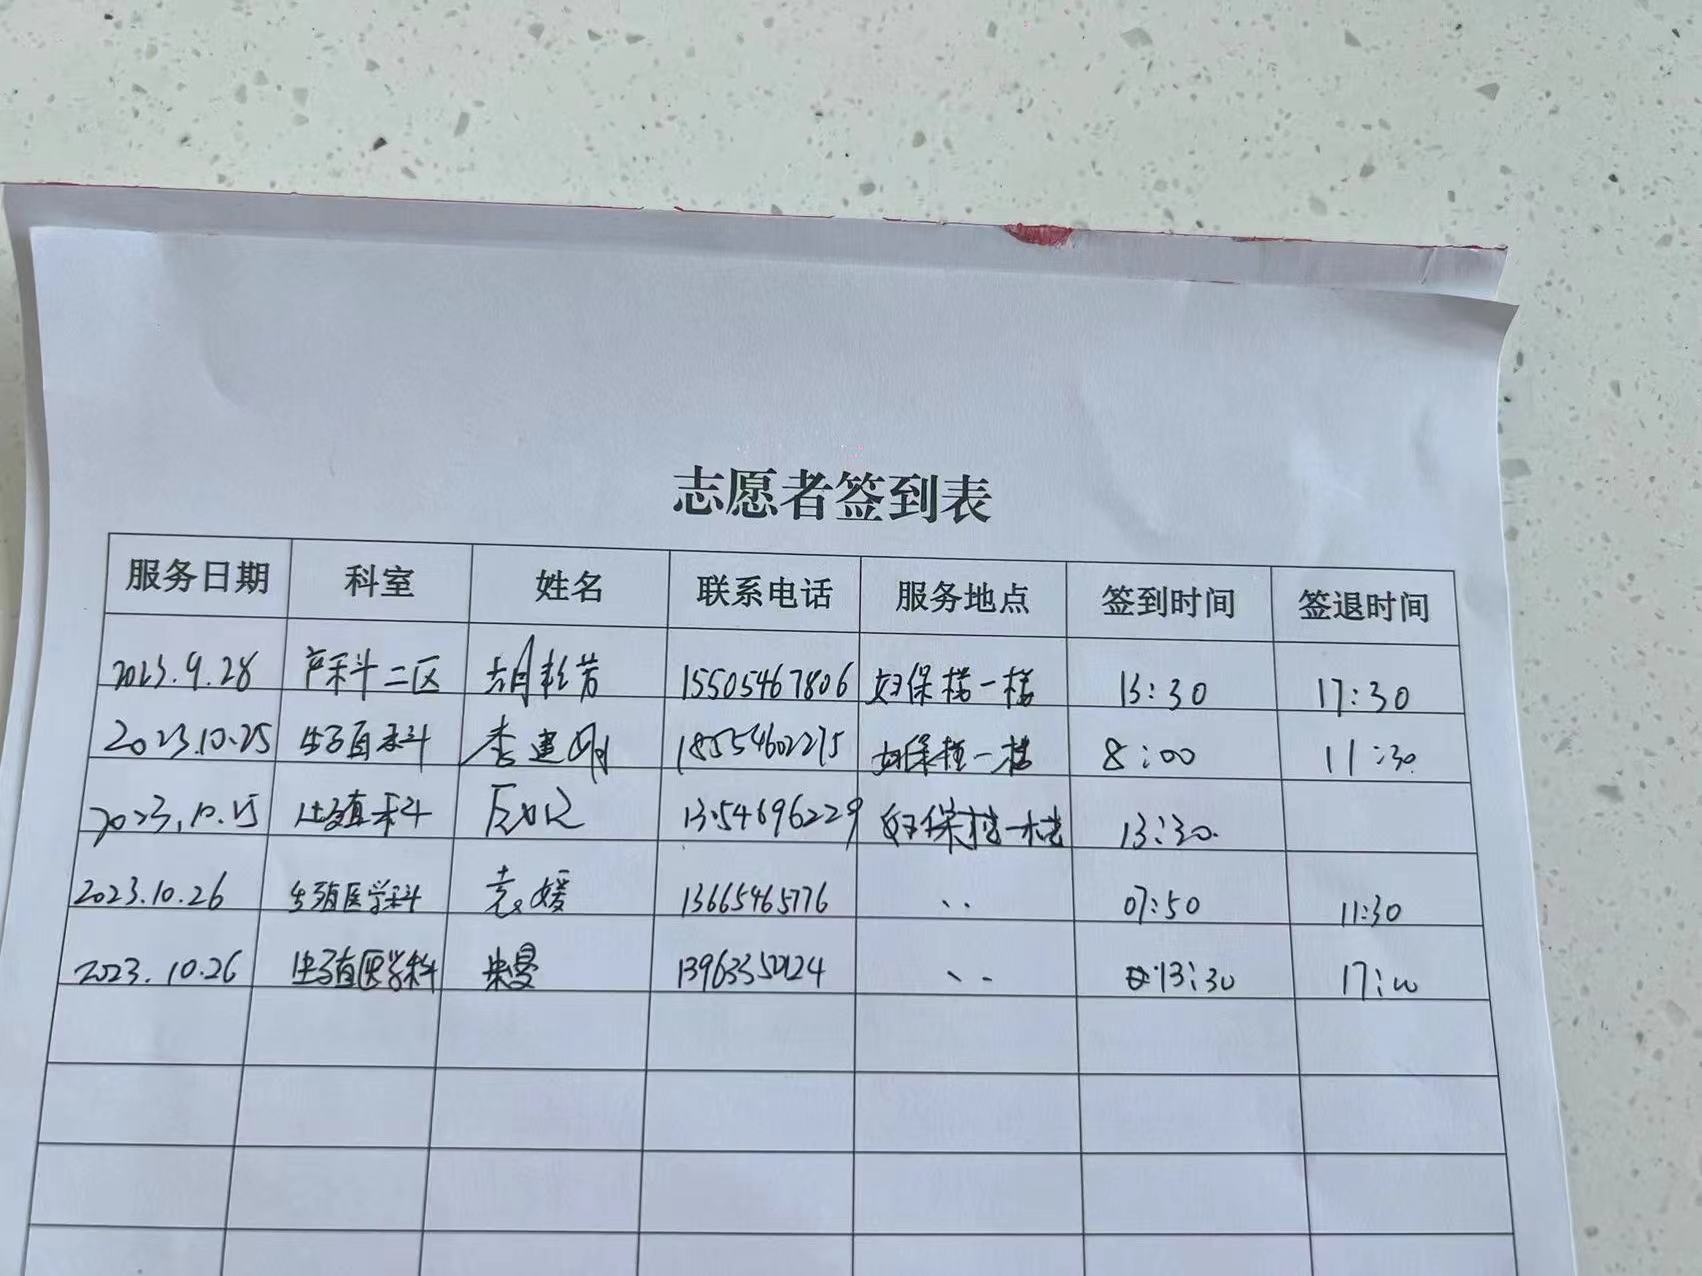 志愿者签到表
服务日期 科室 姓名 联系电话 服务地点 签到时间 签退时间
2023.9.28 产科二区 胡 芳 15505467806 妇保楼一楼 13:30 17:30
2023.10.25 生殖科 李建刚 18554602275 妇保楼一楼 8:00 11:30
2023.10.25 生殖科 妇保楼一楼 13:30
2023.10.26 生殖医学科 袁媛 13665465776 、、 07:50 11:30
2023.10.26 生殖医学科 13963350124 、、 13:30 17:00